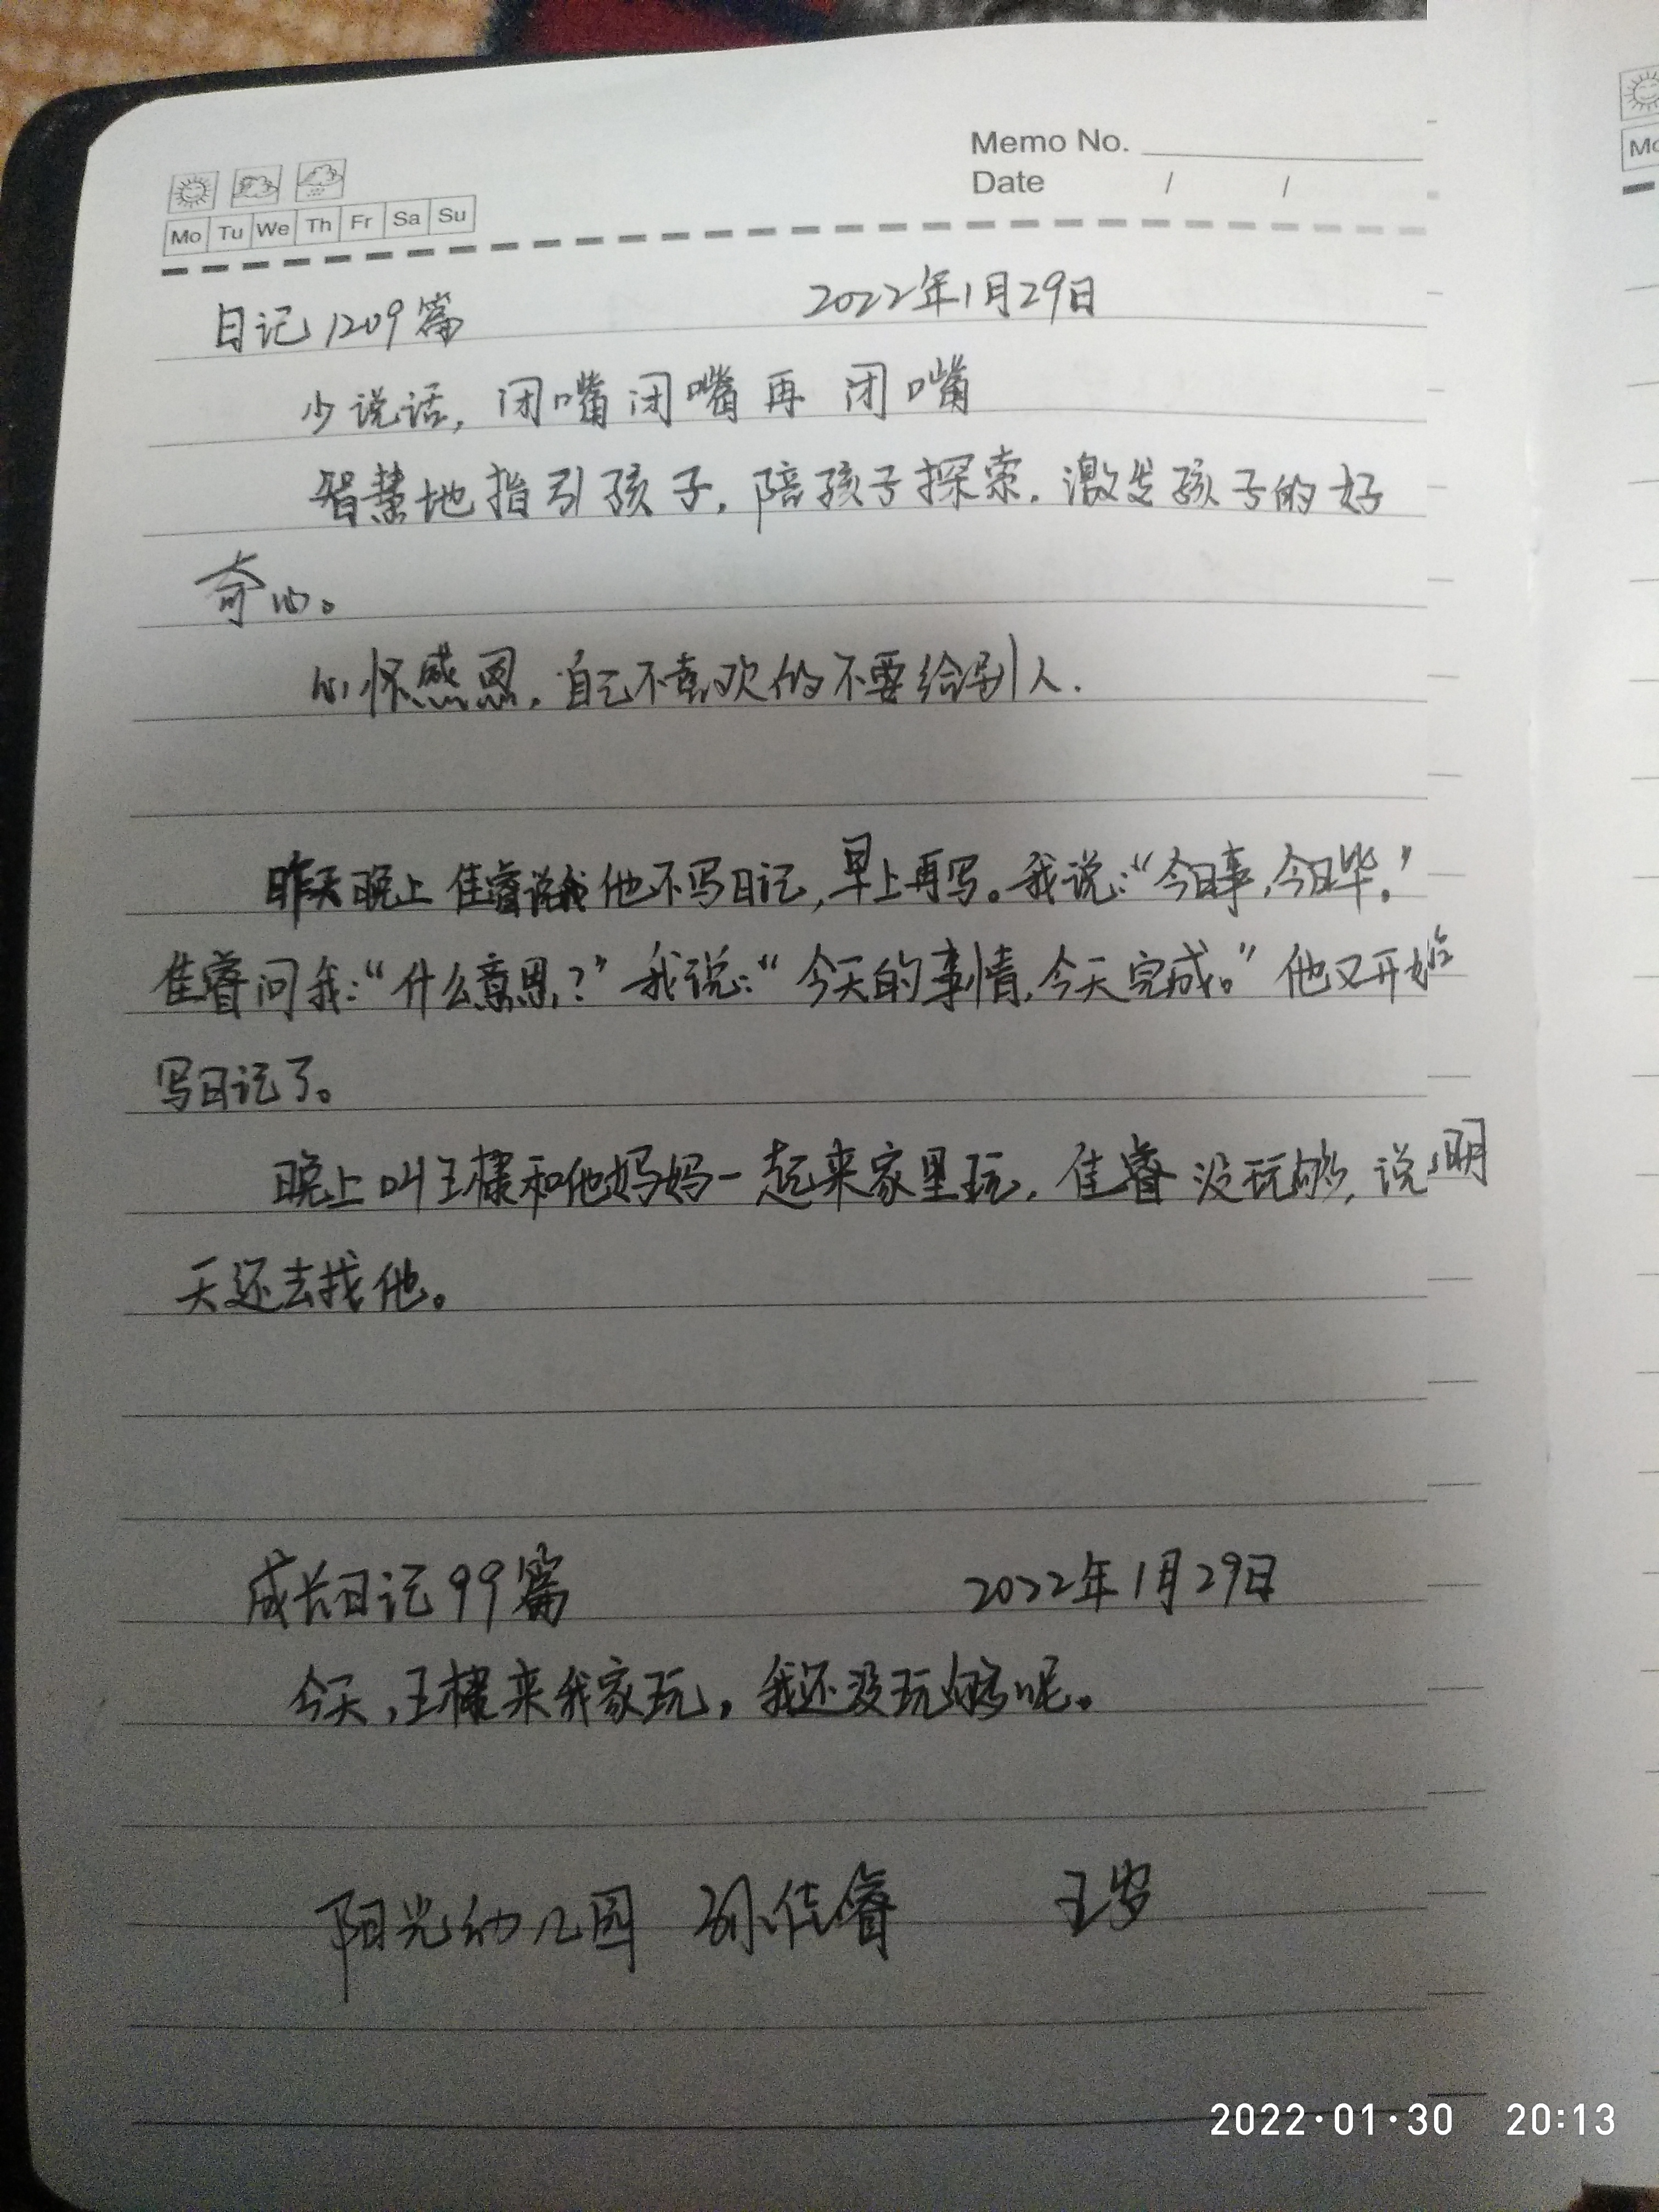 Memo No.
Date / /
Mo Tu We Th Fr Sa Su
Mo
日记1209篇 2022年1月29日
少说话,闭嘴闭嘴再闭嘴
智慧地指引孩子,陪孩子探索,激发孩子的好
奇心。
心怀感恩,自己不喜欢的不要给别人.
昨天晚上佳睿说他不写日记,早上再写。我说:“今日事,今日毕。”
佳睿问我:“什么意思?”我说:“今天的事情,今天完成。”他又开始
写日记了。
晚上叫王棣和他妈妈一起来家里玩,佳睿没玩够,说明
天还去找他。
成长日记99篇 2022年1月29日
今天,王棣来我家玩,我还没玩够呢。
阳光幼儿园 孙佳睿 岁
2022·01·30 20:13